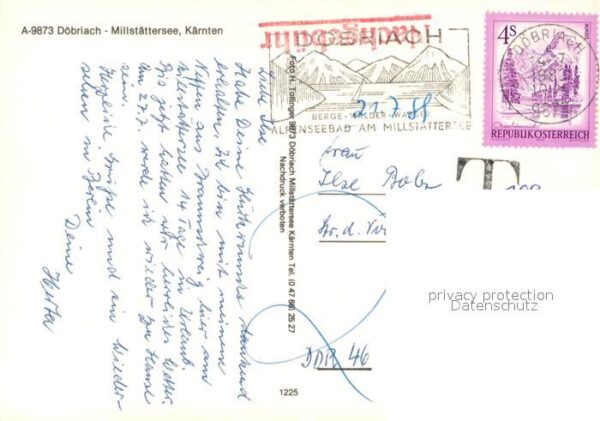 A-9873 Döbriach - Millstättersee, Kärnten
Liebe Ilse
Habe Deine Glückwünsche dankend
erhalten. Ich bin mit meinem
Neffen aus Braunschweig hier am
Millstättersee 14 Tage im Urlaub.
Bis jetzt hatten wir herrliches Wetter.
Am 27.7. werde ich wieder zu Hause
sein.
Herzliche Grüße und ein Wieder-
sehen in
Deine
Herta
Foto H. Tollinger 9873 Döbriach Millstättersee Kärnten Tel. (0 42 46) 25 27
Nachdruck verboten
1225
Nachgebühr
DÖBRIACH
BERGE · WÄLDER · WASSER
ALPENSEEBAD AM MILLSTÄTTERSEE
21.7.88
DÖBRIACH
4S
REPUBLIK ÖSTERREICH
T
Frau
Ilse
Str. d.
DDR 46
privacy protection
Datenschutz